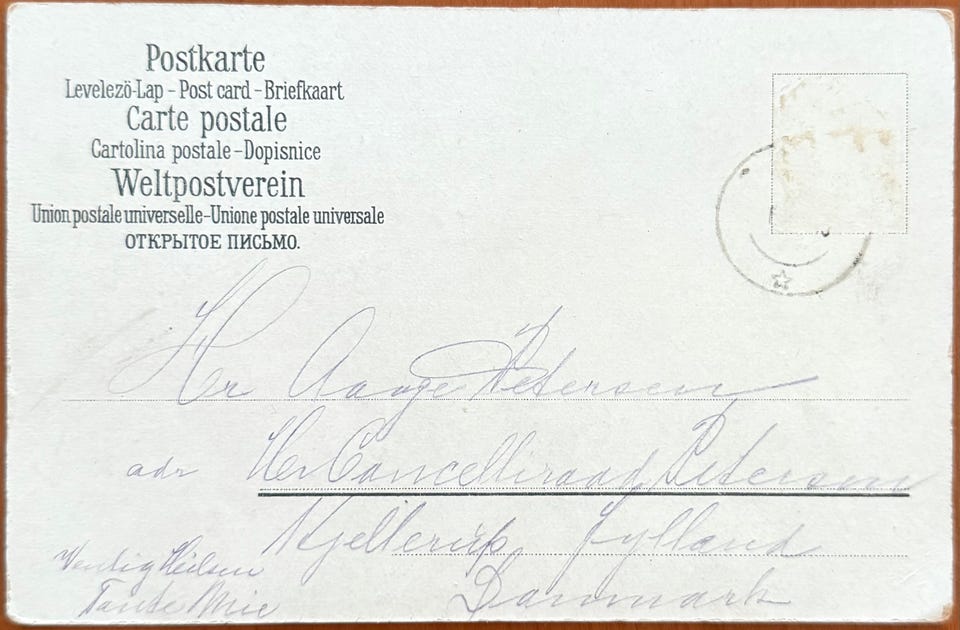 Postkarte
Levelezö-Lap – Post card – Briefkaart
Carte postale
Cartolina postale – Dopisnice
Weltpostverein
Union postale universelle – Unione postale universale
ОТКРЫТОЕ ПИСЬМО.
Hr Aage Petersen
adr Hr Cancelliraad Petersen
Kjellerup Jylland
Danmark
Venlig Hilsen
Tante Mie